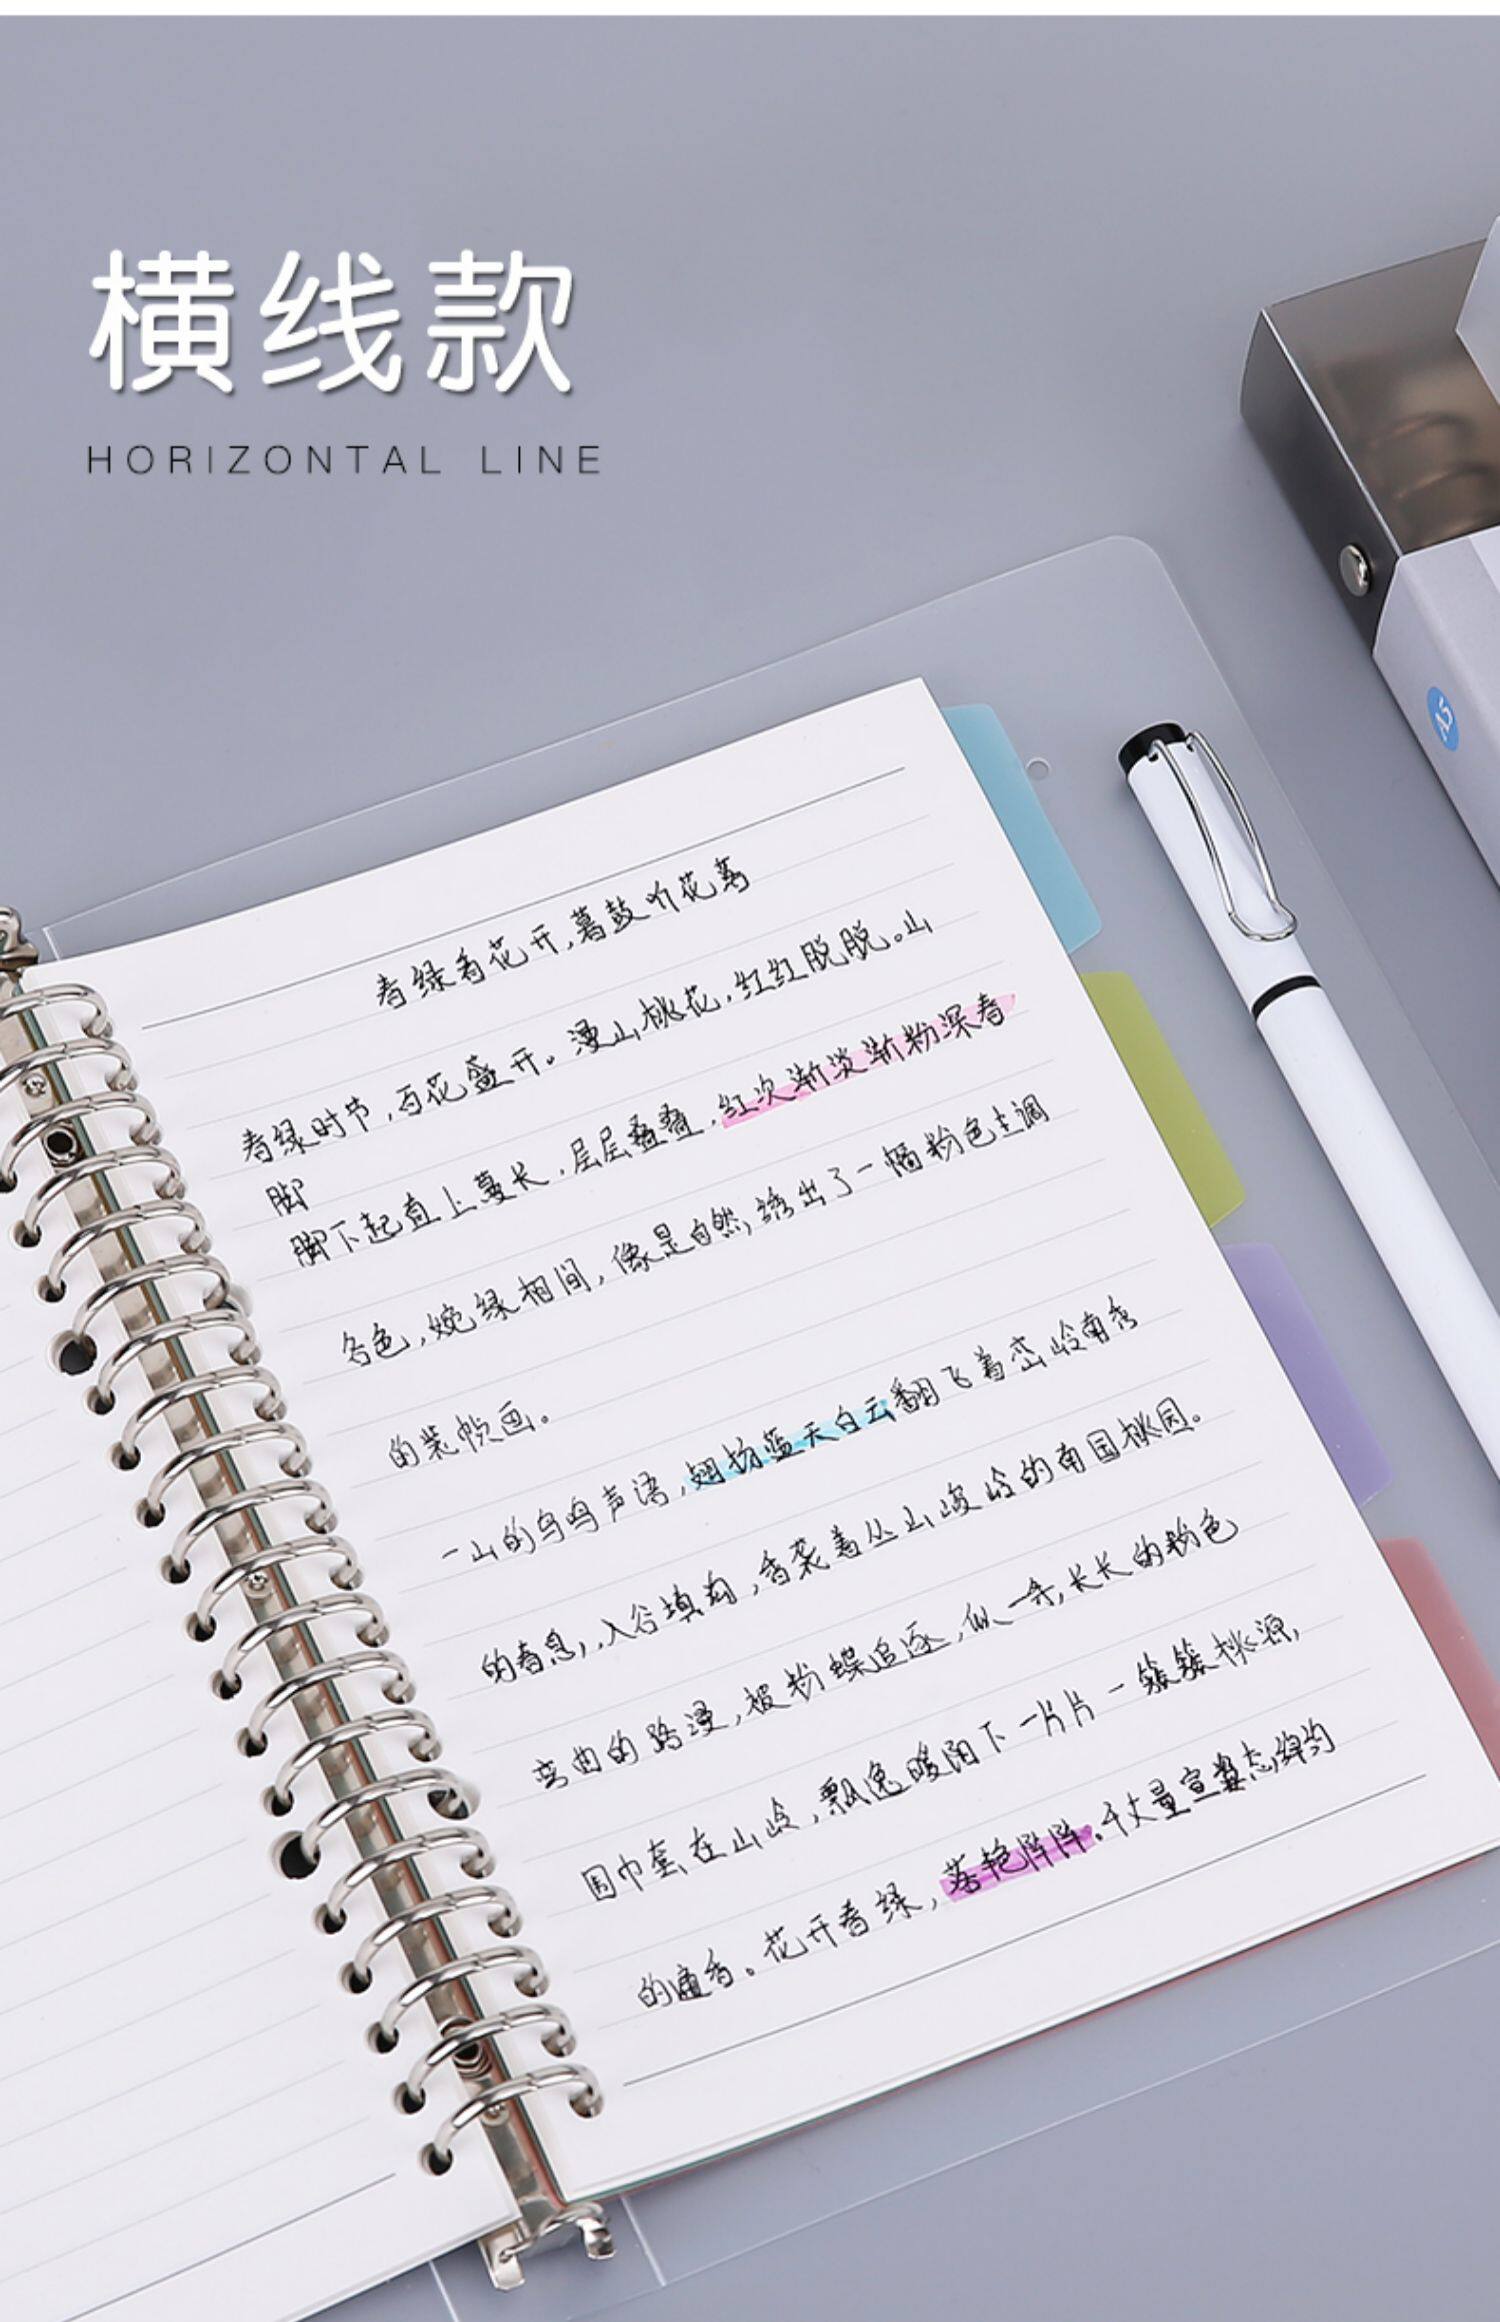 横线款
HORIZONTAL LINE
A5
春绿看花开,暮鼓听花落
春绿时节,百花盛开。漫山桃花,红红脱脱。山
脚
脚下起直上蔓长,层层叠叠,红次渐淡渐粉深春
各色,婉绿相间,像是自然,绣出了一幅粉色主调
的装帧画。
一山的鸟鸣声语,翅扬蓝天白云翻飞着峦岭南秀
的春息,,入谷填,香袭着丛山峻岭的南国桃园。
弯曲的路漫,被粉蝶追逐,似一条,长长的粉色
围巾套在山岭,飘逸暖阳下一片片一簇簇桃源,
的香。花开春绿,落艳阵阵。千丈量宣姿态绰约